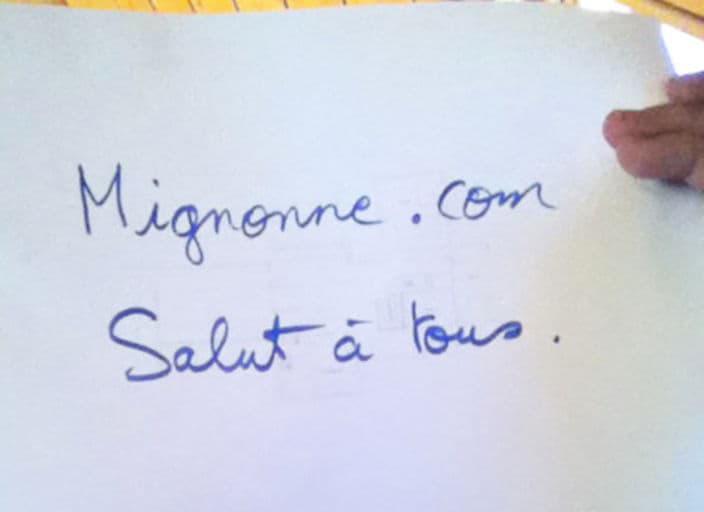 Mignonne.com
Salut à tous.